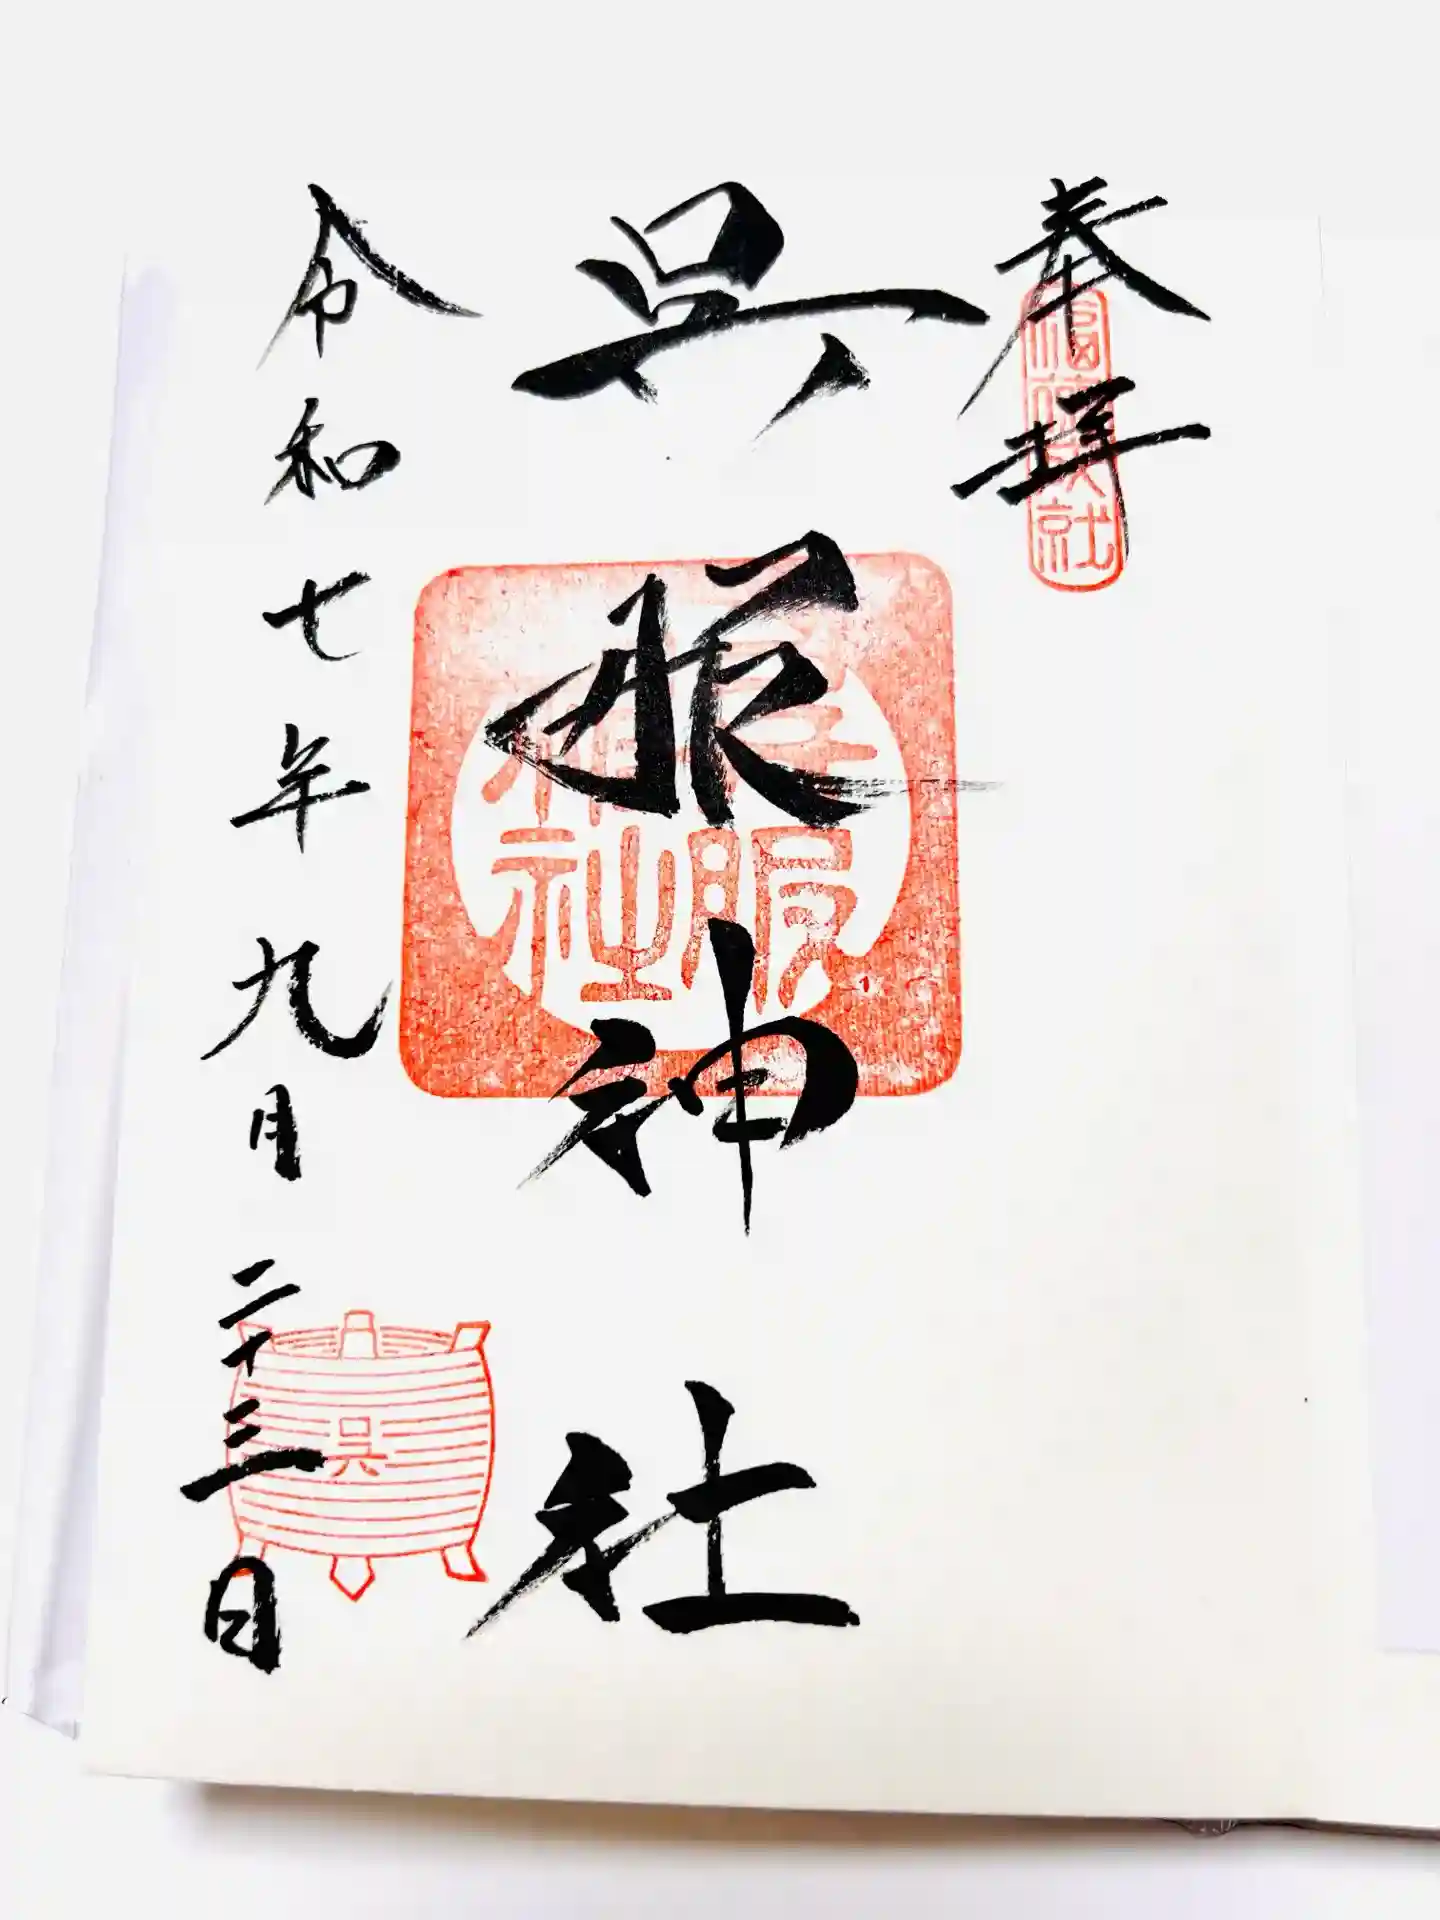 奉拝
呉服神社
呉服
神社
令和七年九月二十三日
呉